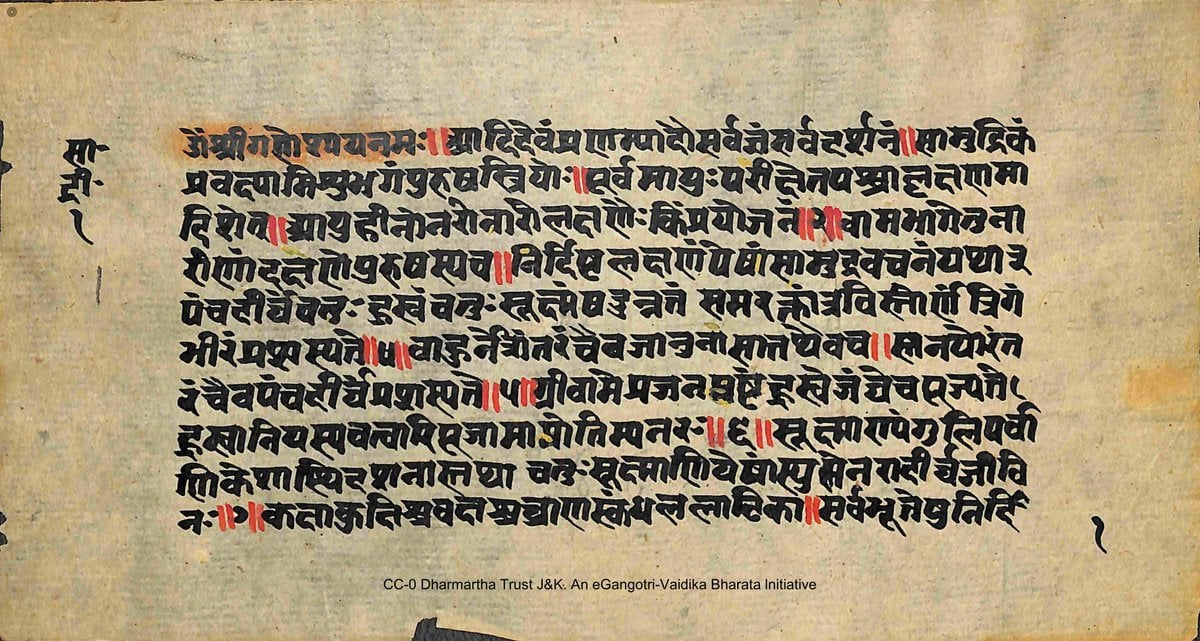 सा॰
द्री॰
१
ॐश्रीगणेशायनमः॥आदिदेवंप्रणम्यादौसर्वज्ञंसर्वदर्शनं॥सामुद्रिकं
प्रवक्ष्यामिशुभगंपुरुषस्त्रियोः॥पूर्वमायुःपरीक्षेतपश्चाल्लक्षणमा
दिशेत॥आयुहीनोनरोनारीलक्षणैःकिंप्रयोजनं॥२॥वामभागेतुना
रीणांदक्षणेपुरुषस्यच॥निर्दिष्टलक्षणंयेषांसामुद्रवचनंयथा३
पंचदीर्घचतुःह्रस्वंचतुःसूक्ष्मंषडुन्नतं समरक्तंत्रविस्तीर्णंत्रिगं
भीरंप्रशस्यते॥४॥वाहुनेत्रांतरंचैवजानुनासातथैवच॥स्तनयोरंत
रंचैवपंचदीर्घप्रशस्यते॥५॥ग्रीवामेप्रजनपृष्टंह्रस्वेजंघेचपूज्यते।
ह्रस्वानियस्यचत्वारिपूजामाप्नोतिम्यनरः॥६॥सूक्ष्मारापंगुलिपर्वा
णिकेशास्थिदशनास्तथा चतुःसूक्ष्माणियेषांस्युस्तेनरादीर्घजीवि
नः॥७॥कक्षाकुक्षिश्चवक्षश्चघ्राणस्कंधललाटिका॥सर्वभूतेषुनिर्दि
१
CC-0 Dharmartha Trust J&K. An eGangotri-Vaidika Bharata Initiative